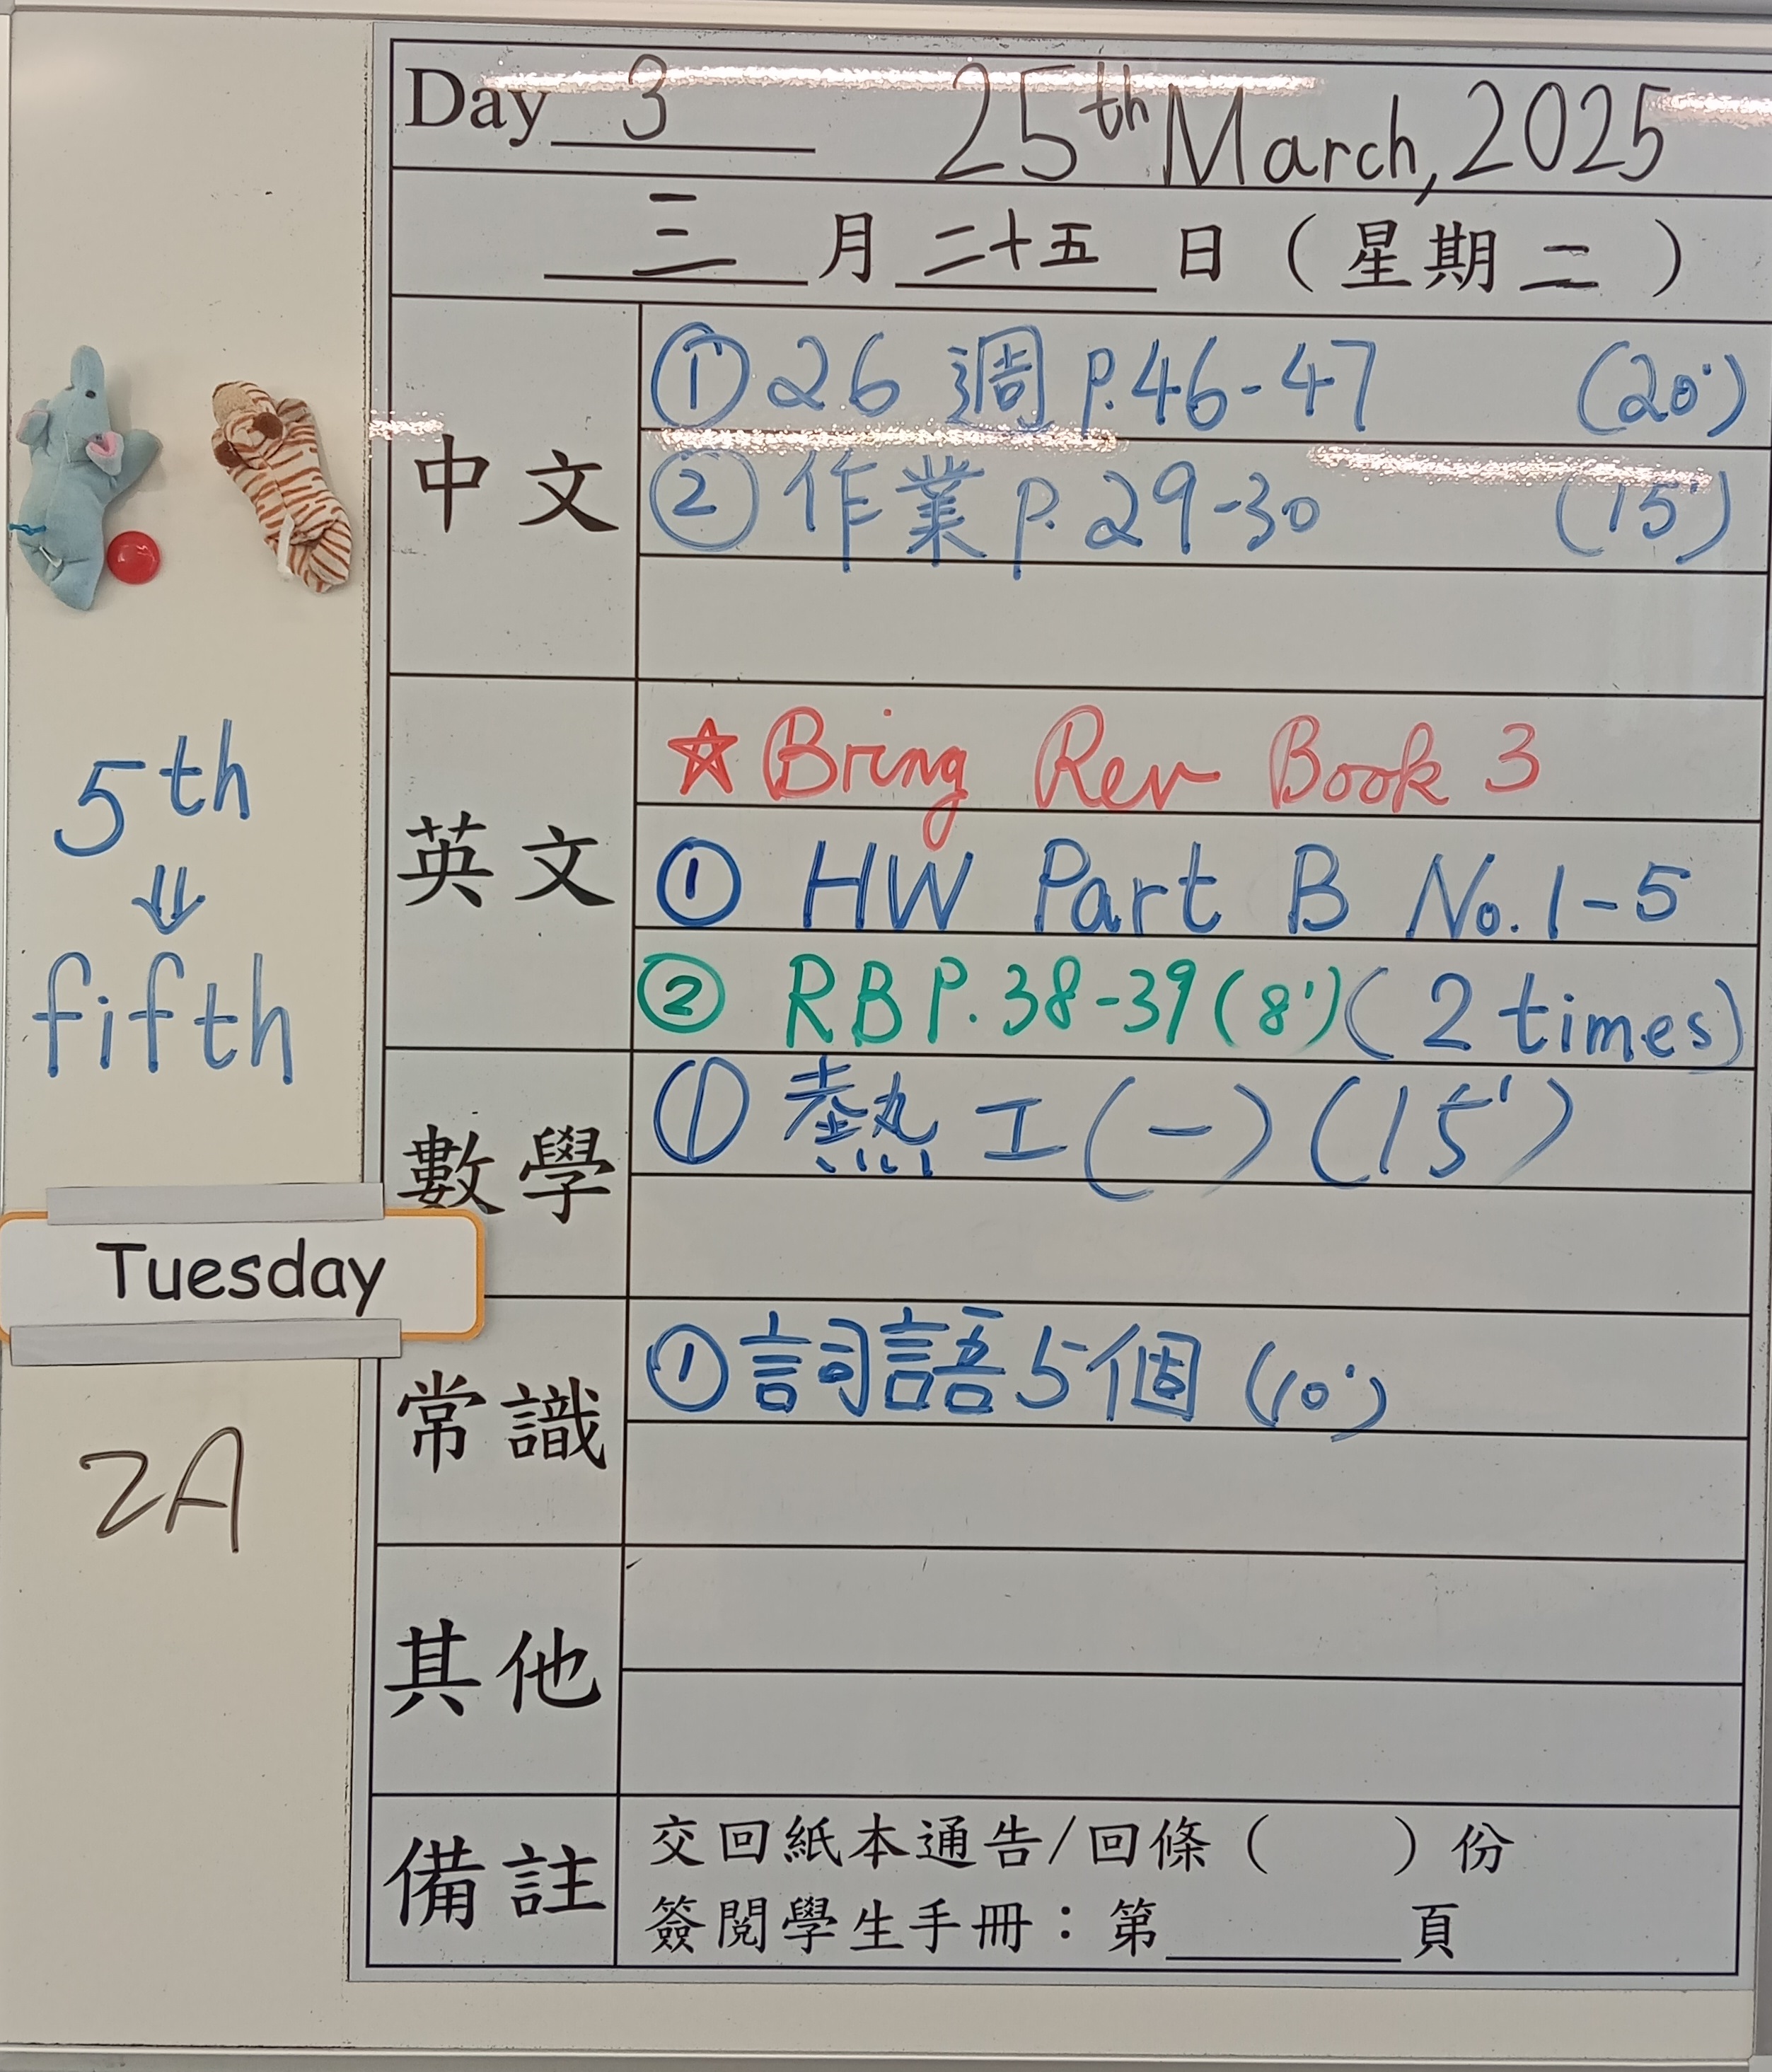 Day 3 25th March, 2025
三月二十五日（星期二）
中文
① 26 週 P.46-47 (20')
② 作業 P.29-30 (15')
英文
☆ Bring Rev Book 3
① HW Part B No.1-5
② RB P.38-39 (8') (2 times)
數學
① 熱工(一) (15')
常識
① 詞語5個 (10')
其他
備註
交回紙本通告/回條（　　）份
簽閱學生手冊：第______頁
5th
⇓
fifth
Tuesday
2A